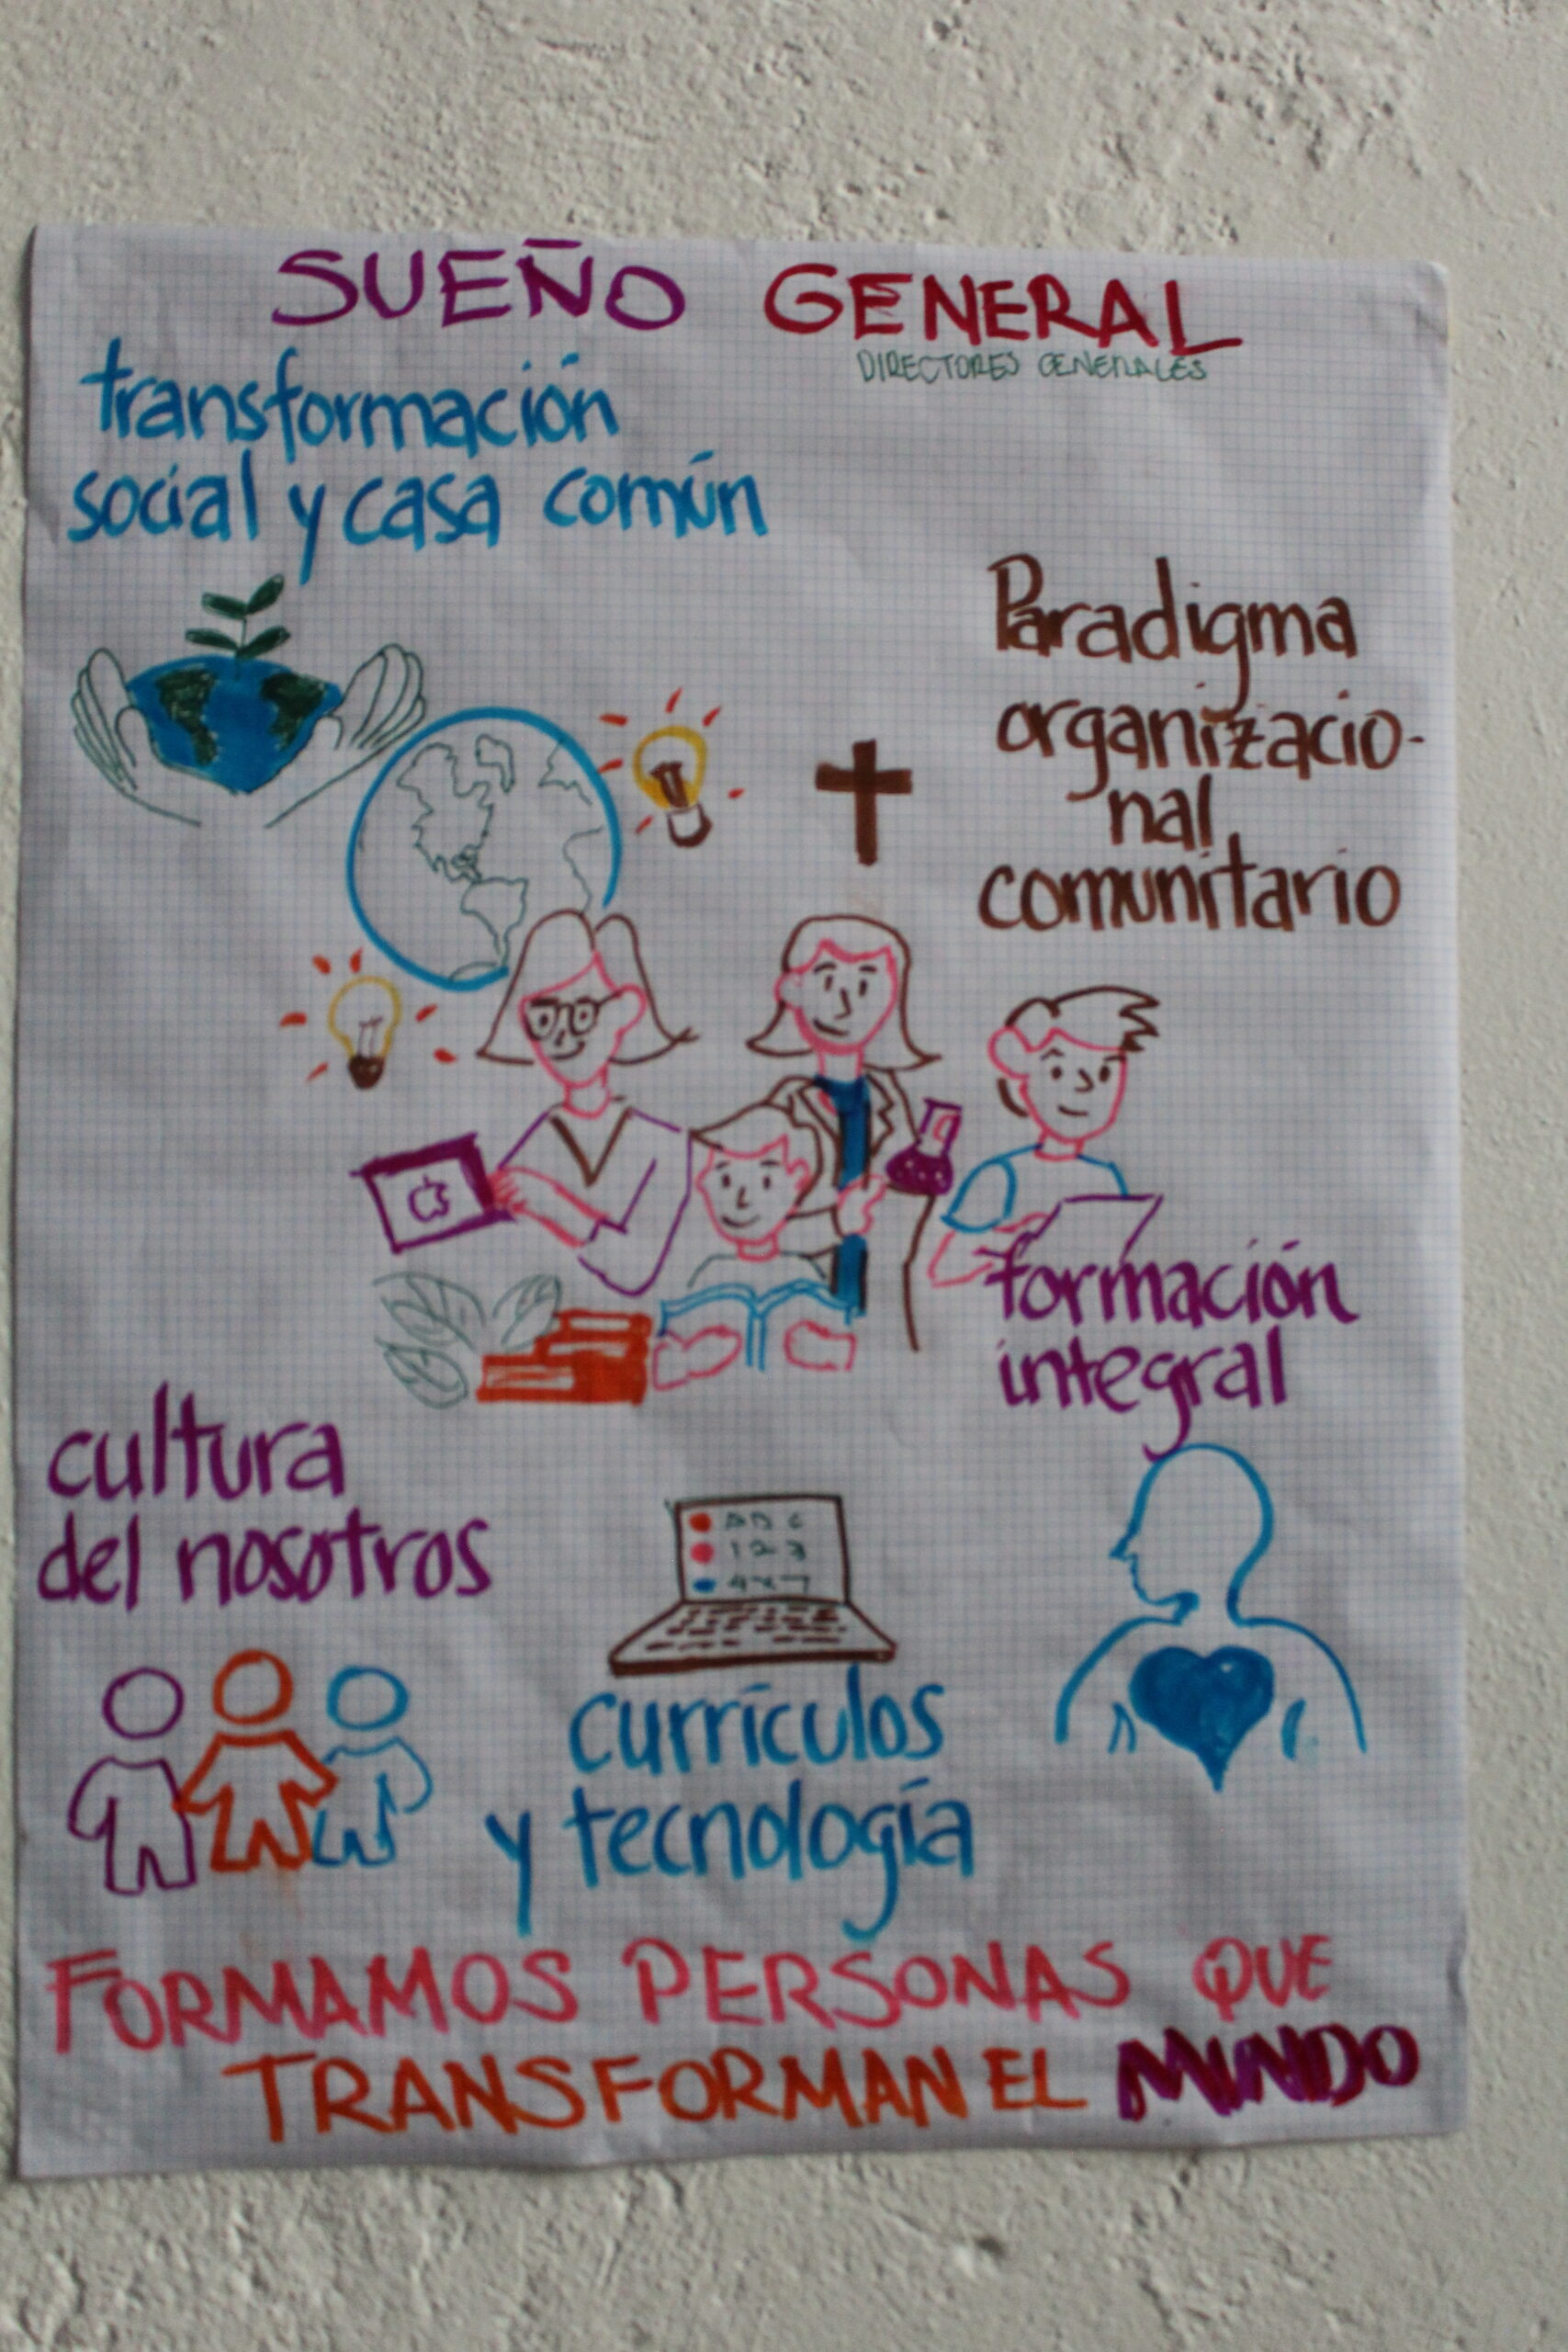 SUEÑO GENERAL
DIRECTORES GENERALES
transformación
social y casa común
Paradigma
organizacio-
nal
comunitario
formación
integral
cultura
del nosotros
A B C
1 2 3
currículos
y tecnología
FORMAMOS PERSONAS QUE
TRANSFORMAN EL MUNDO